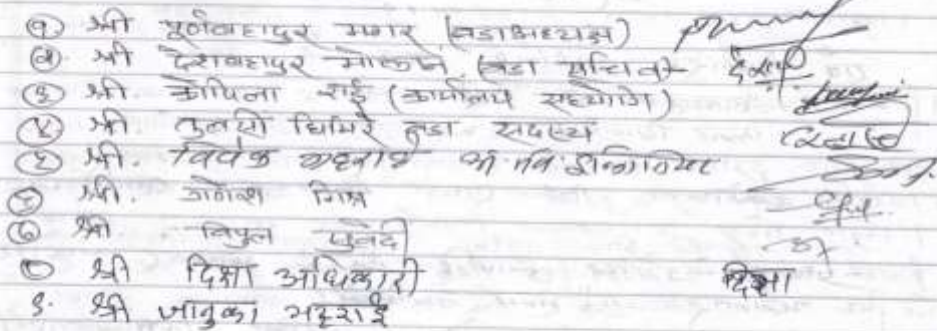 १) श्री पूर्णबहादुर मगर (वडाअध्यक्ष)
२) श्री देशबहादुर मोक्तान (वडा सचिव) देशब
३) श्री कोपिला राई (कार्यालय सहयोगि)
४) श्री तुलसी घिमिरे वडा सदस्य
५) श्री. विवेक भट्टराई
६) श्री. गणेश मिश्र
७) श्री विपुल चुवेदी
८) श्री दिक्षा अधिकारी दिक्षा
९. श्री जानुका भट्टराई